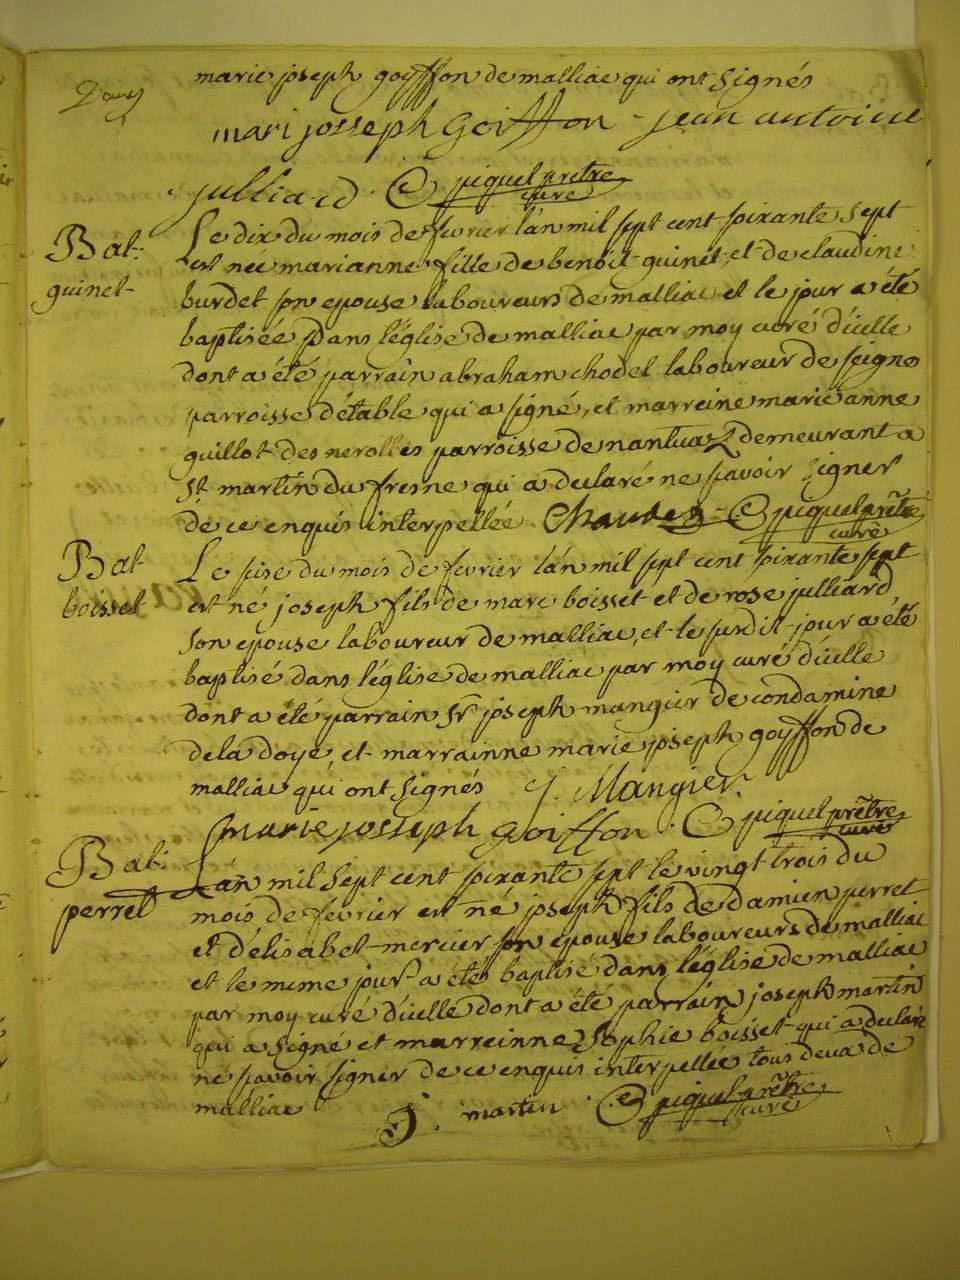 marie joseph goyffon de malliac qui ont signés
mari josseph Goiffon - jean antoine
julliard. C piquel prêtre
curé
Bat:
guinet
Le dix du mois de fevrier l'an mil sept cent soixante sept
est nee marianne fille de benoit guinet, et de claudine
burdet son epouse laboureurs de malliac et le jour a été
baptisée dans l'église de malliac par moy curé d'icelle
dont a été parrain abraham chodel laboureur de seigne
parroisse d'étable qui a signé, et marreine marie anne
guillot des nerolles parroisse de nantua demeurant a
St. martin du fresne qui a declaré ne savoir signer
de ce enquis interpellée C piquel prêtre
curé
Bat
boisset
Le sise du mois de fevrier l'an mil sept cent soixante sept
est né joseph fils de marc boisset et de rose julliard,
son epouse laboureur de malliac, et le surdit jour a été
baptisé dans l'église de malliac par moy curé d'icelle
dont a été parrain Sr. joseph mangier de condamine
de la doye, et marrainne marie joseph goyffon de
malliac qui ont signés J. Mangier.
marie josseph goiffon. C piquel prêtre
curé
Bat:
perret
L'an mil sept cent soixante sept le vingt trois du
mois de fevrier est né joseph fils de damien perret
et d'élisabet mercier son epouse laboureurs de malliac
et le meme jour a été baptisé dans l'église de malliac
par moy curé d'icelle dont a été parrain joseph martin
qui a signé et marreinne Sophie boisset qui a declaré
ne savoir signer de ce enquis interpellée tous deux de
malliac J. martin C piquel prêtre
curé